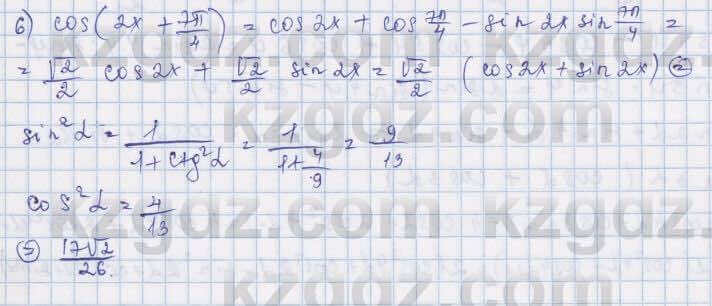 б) cos(2x + 7π/4) = cos 2x + cos 7π/4 - sin 2x sin 7π/4 =
= √2/2 cos 2x + √2/2 sin 2x = √2/2 (cos 2x + sin 2x) ⊜
sin²α = 1/(1 + ctg²α) = 1/(1 + 4/9) = 9/13
cos²α = 4/13
⊜ 17√2/26.
kzgdz.com
kzgdz.com
kzgdz.com